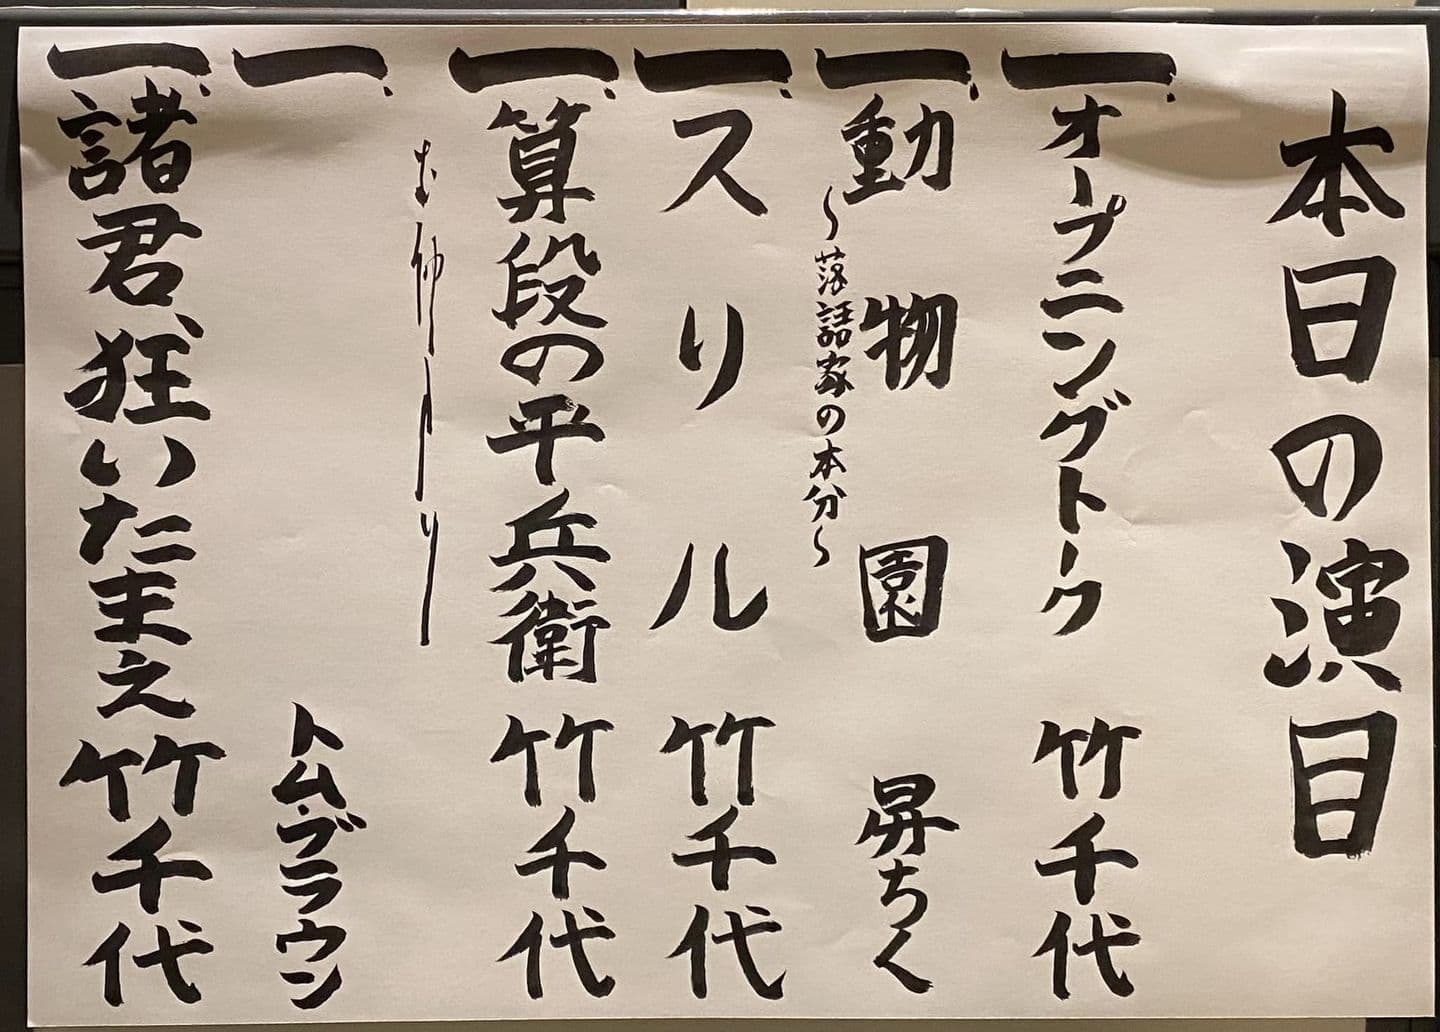 本日の演目
一、オープニングトーク 竹千代
一、動物園 昇ちく
〜落語家の本分〜
一、スリル 竹千代
一、算段の平兵衛 竹千代
お仲入り
一、 トム・ブラウン
一、諸君、狂いたまえ 竹千代